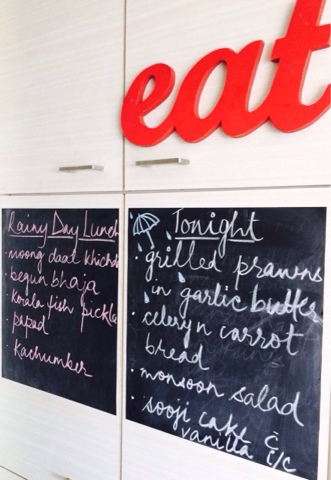 eat
Rainy Day Lunch
· moong daal khichdi
· begun bhaja
· kerala fish pickle
· papad
· kachumber
Tonight
· grilled prawns
in garlic butter
· celery n carrot
bread
· monsoon salad
· sooji cake c̄
vanilla i/c